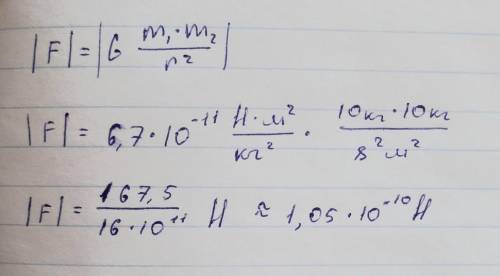 |F| = |G m₁·m₂ / r²|
|F| = 6,7·10⁻¹¹ Н·м²/кг² · 10кг·10кг / 8²м²
|F| = 167,5 / 16·10¹¹ Н ≈ 1,05·10⁻¹⁰Н